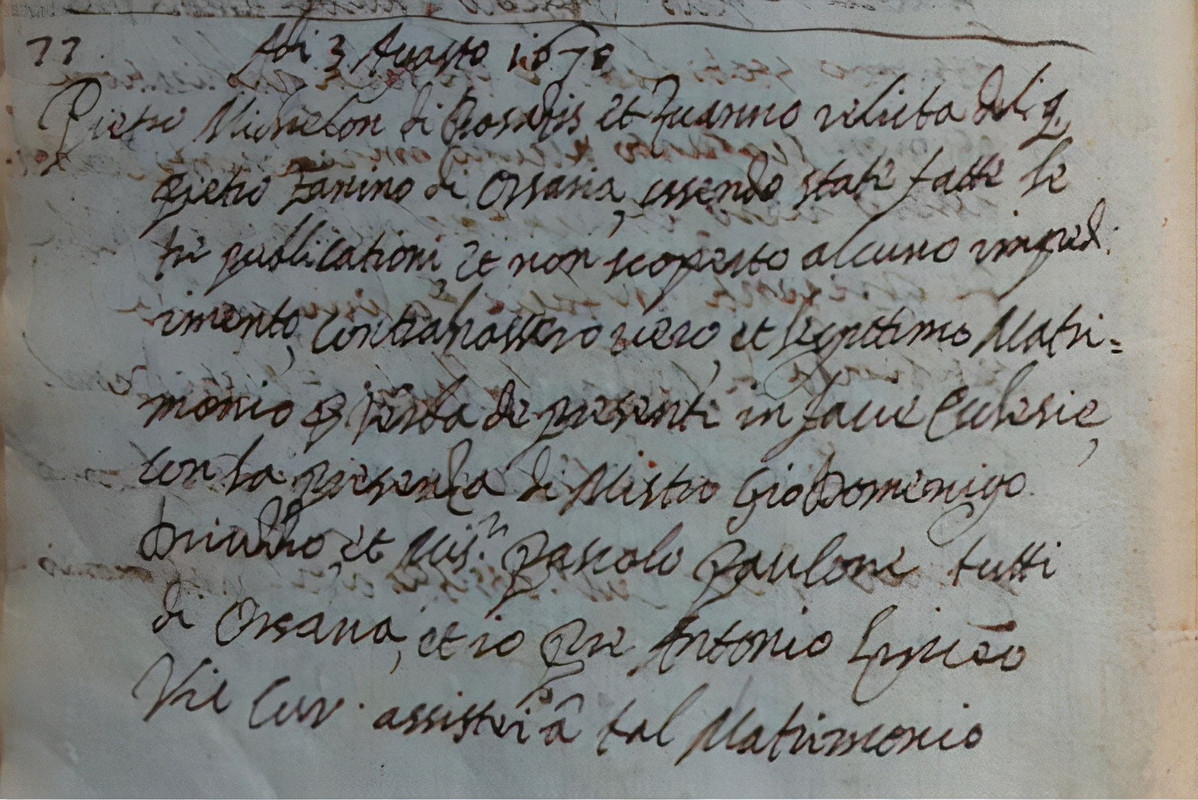 77 Adi 3 Agosto 1678
Pietro Michelon di Rosatis et Zuanna relicta del q.
pietro Zanino di Orsaria, essendo state fatte le
tre publicationi, et non scoperto alcuno imped
imento, contrahossero vero, et legittimo Matri=
monio p verba de presenti in facie Eclesie,
con la presenza di Mistro Gio Domenigo
et Mis.n pascolo paulone tutti
di Orsaria, et io pre Antonio
Vic Cur. assistei â tal Matrimonio